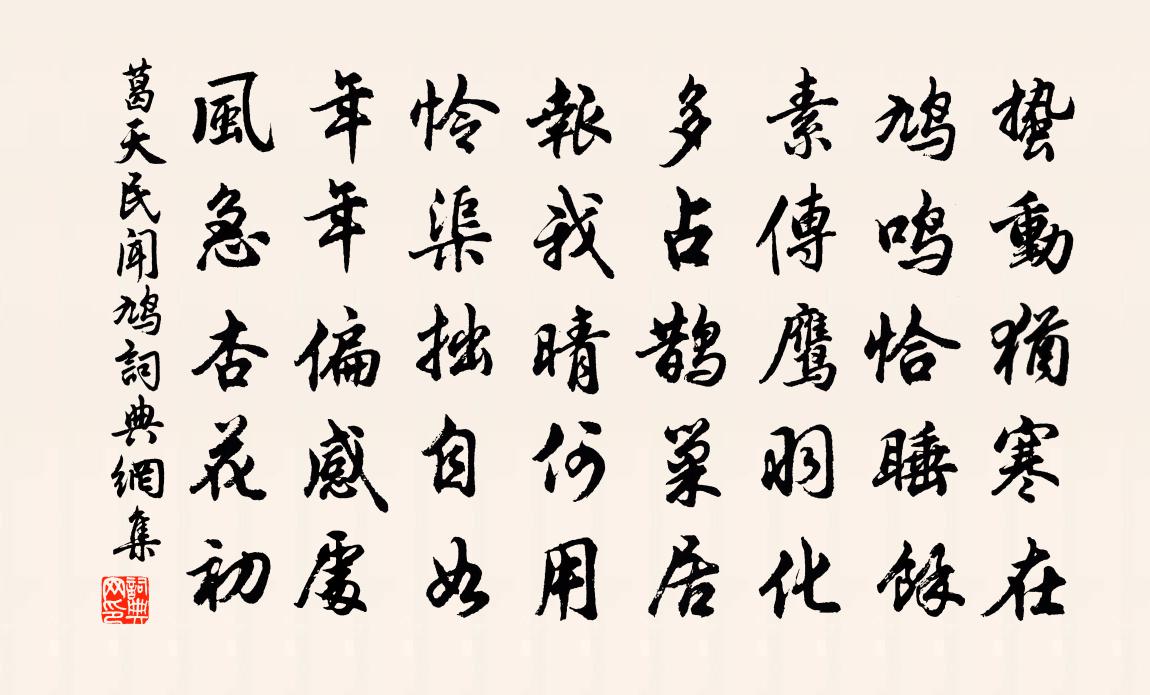 蟄動猶寒在
鳩鳴恰睡餘
素傳鷹羽化
多占鵲巢居
報我晴何用
憐渠拙自如
年年偏感處
風急杏花初
葛天民聞鳩詞典網集
詞典網印